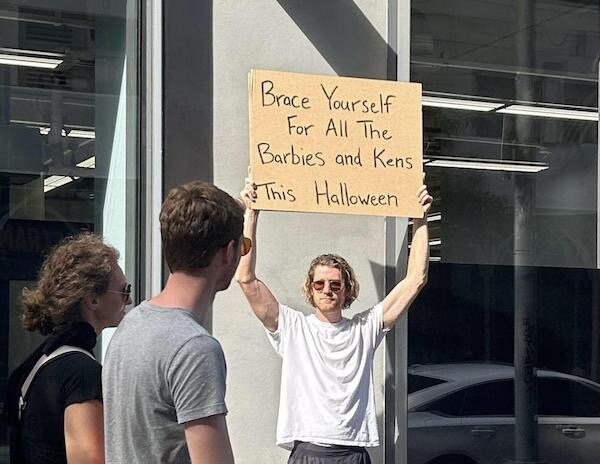 Brace Yourself
For All The
Barbies and Kens
This Halloween